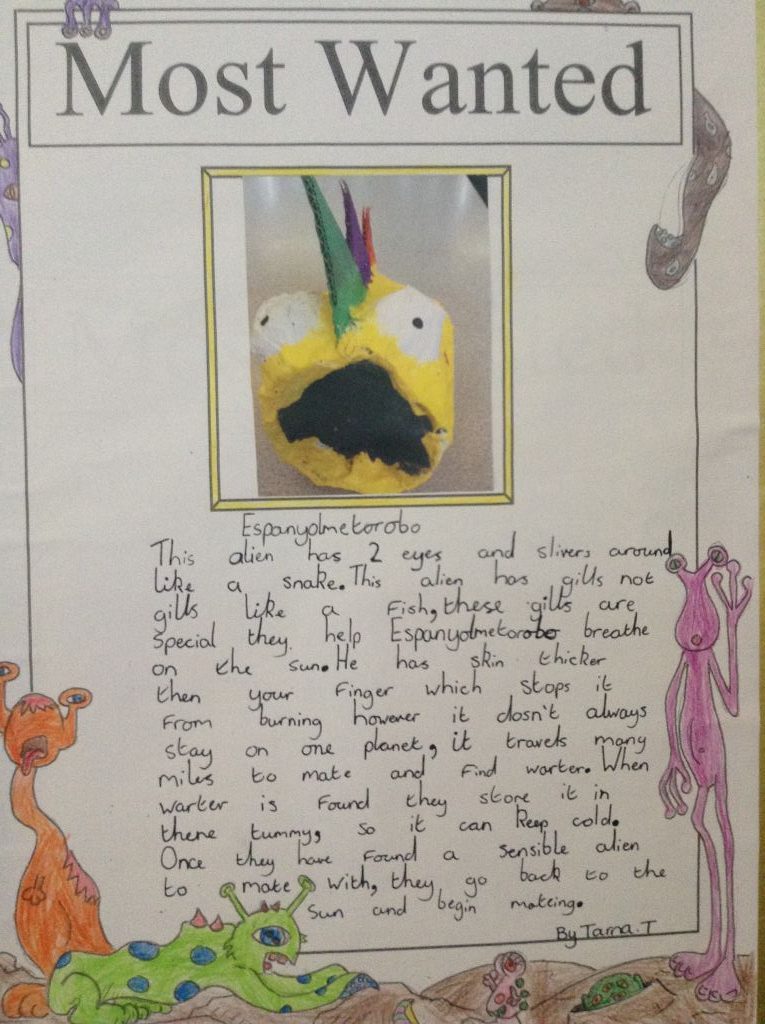 Most Wanted
Espanyolmetorobo
This alien has 2 eyes and slivers around
like a snake. This alien has gills not
gills like a fish, these gills are
special they help Espanyolmetorobo breathe
on the sun. He has skin thicker
then your finger which stops it
from burning however it dosn't always
stay on one planet, it travels many
miles to mate and find warter. When
warter is found they store it in
there tummy, so it can keep cold.
Once they have found a sensible alien
to mate with, they go back to the
sun and begin mateing.
By Tarna.T